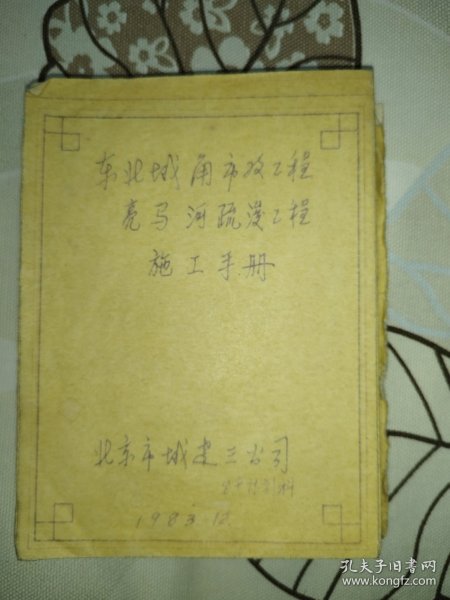 东北城角市政工程
亮马河疏浚工程
施工手册
北京市城建三公司
1983.12
孔夫子旧书网
www.kongfz.com